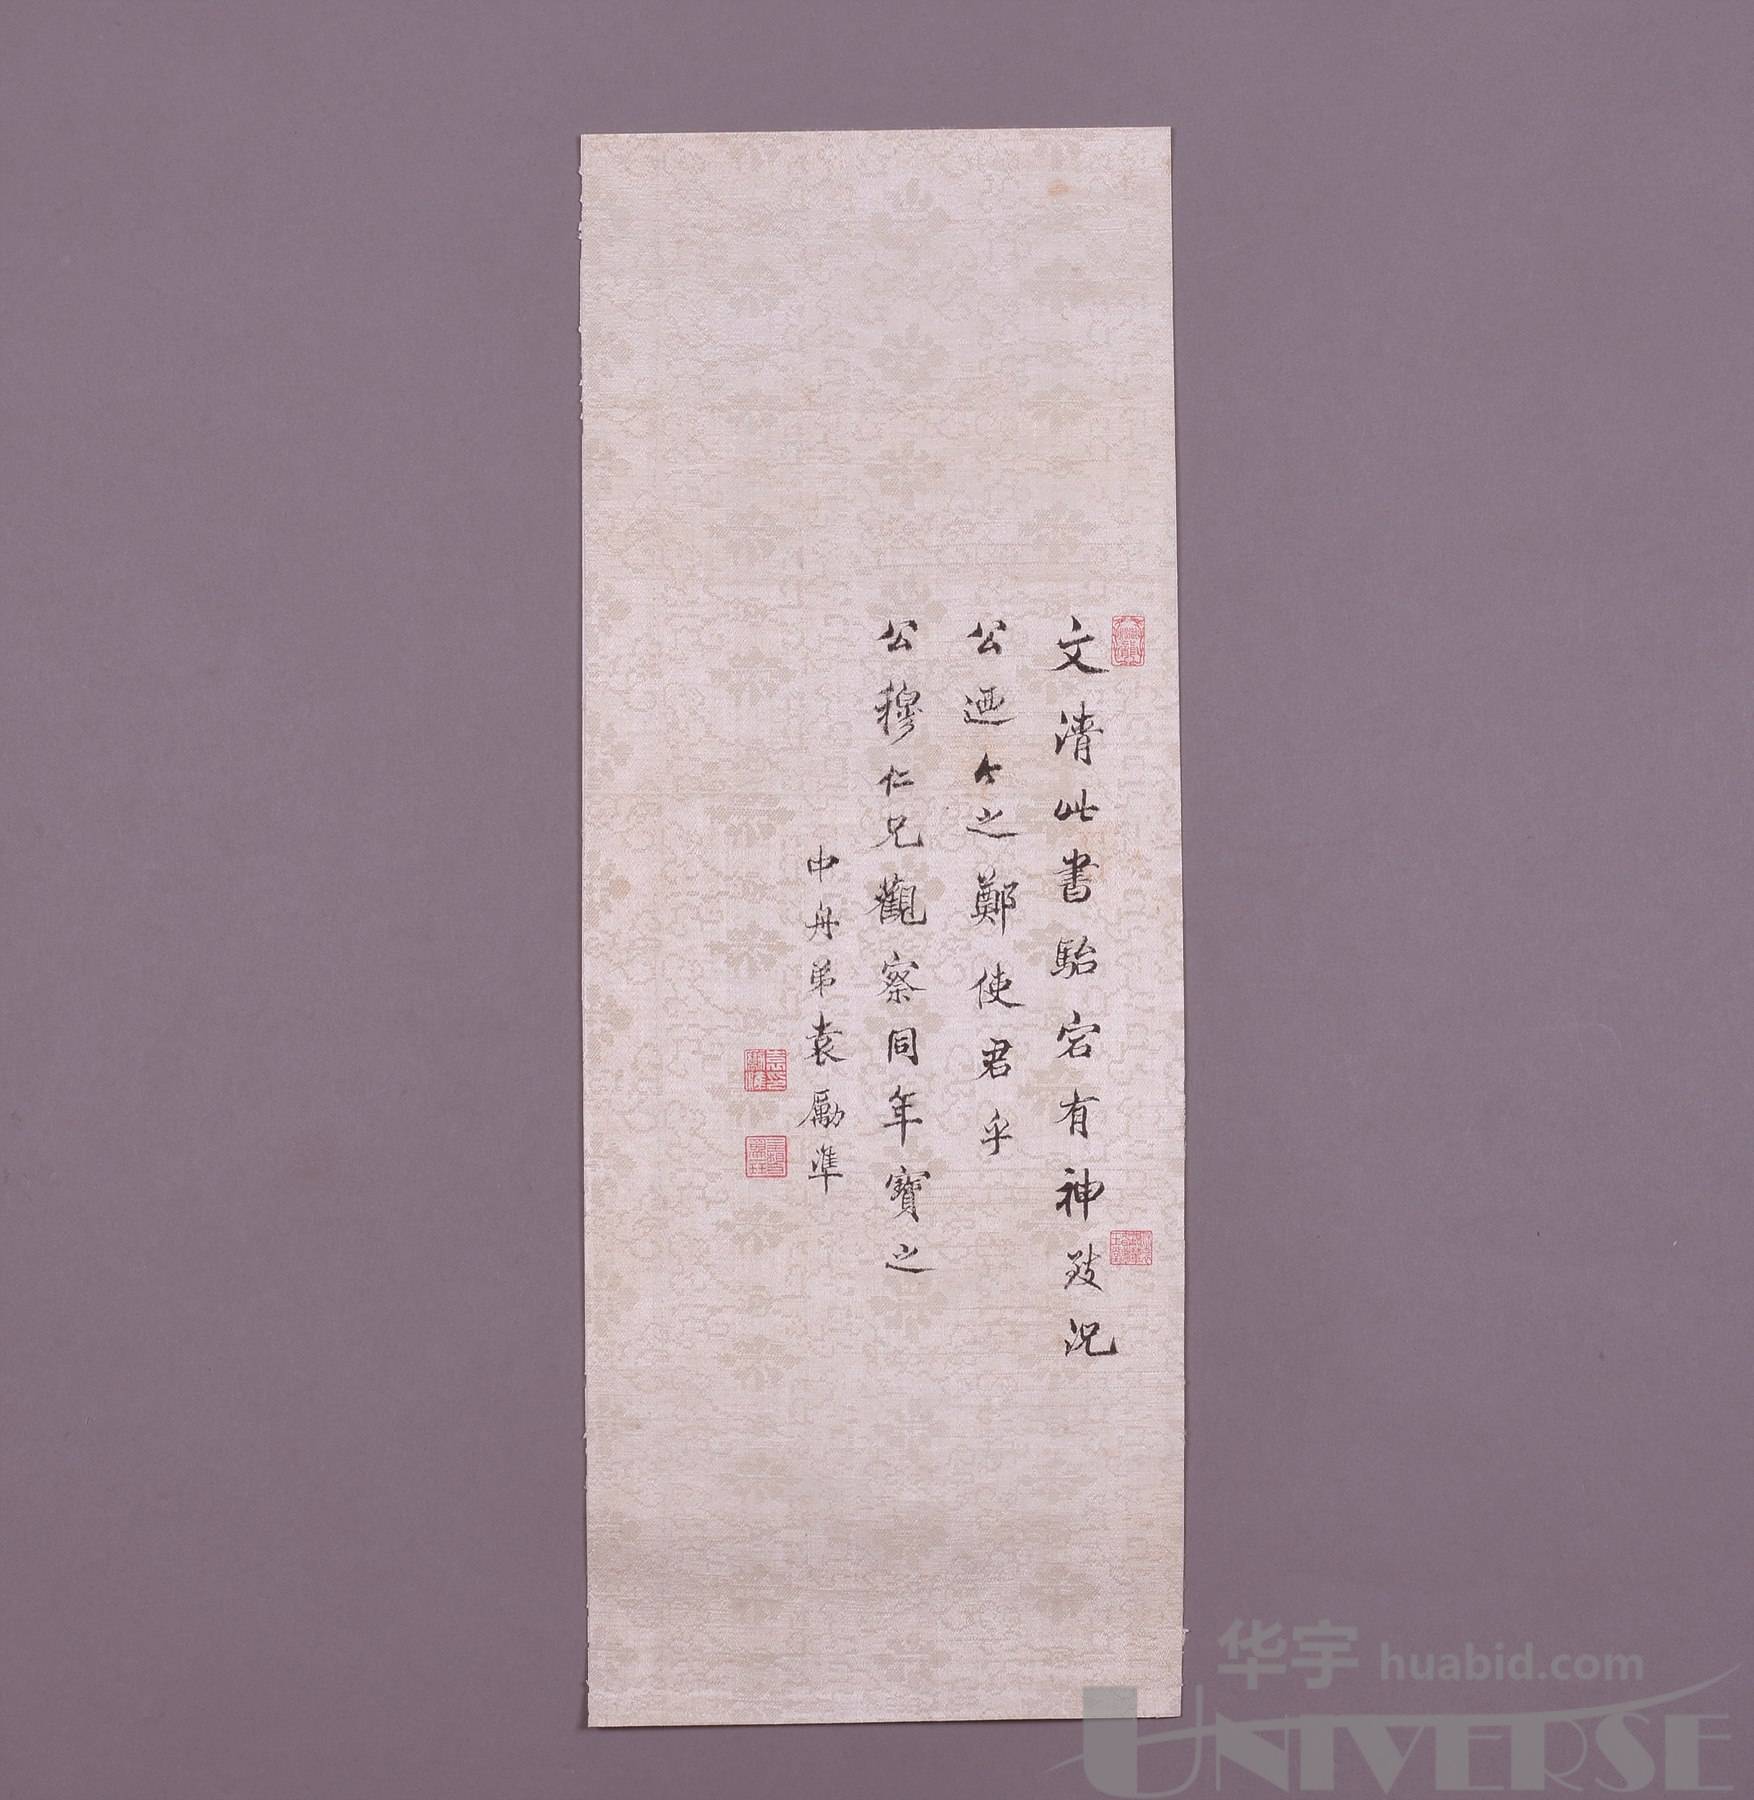 文清此書駘宕有神致況
公迺今之鄭使君乎
公穆仁兄觀察同年寶之
中舟弟袁勵準
华宇 huabid.com
UNIVERSE